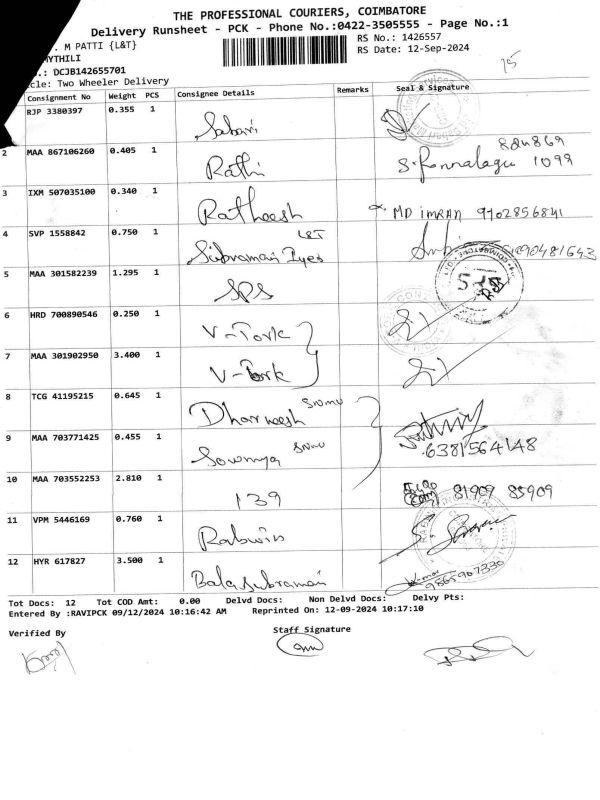 THE PROFESSIONAL COURIERS, COIMBATORE
Delivery Runsheet - PCK - Phone No.:0422-3505555 - Page No.:1
. M PATTI {L&T}
RS No.: 1426557
MYTHILI
RS Date: 12-Sep-2024
.: DCJB142655701
cle: Two Wheeler Delivery
15
Consignment No Weight PCS Consignee Details Remarks Seal & Signature
RJP 3380397 0.355 1 Sabari
2 MAA 867106260 0.405 1 Rathi S. Ponnalagu 1099
3 IXM 507035100 0.340 1 Ratheesh MD IMRAN 9702856841
4 SVP 1558842 0.750 1 Subramani Iyer L&T
5 MAA 301582239 1.295 1 SPS
6 HRD 700890546 0.250 1 V-Tork
7 MAA 301902950 3.400 1 V-Tork
8 TCG 41195215 0.645 1 Dharneesh
9 MAA 703771425 0.455 1 Sowmya 6381564148
10 MAA 703552253 2.810 1 139 81909 85909
11 VPM 5446169 0.760 1 Rabwin
12 HYR 617827 3.500 1 Balasubramani 9865907330
Tot Docs: 12 Tot COD Amt: 0.00 Delvd Docs: Non Delvd Docs: Delvy Pts:
Entered By :RAVIPCK 09/12/2024 10:16:42 AM Reprinted On: 12-09-2024 10:17:10
Verified By Staff Signature